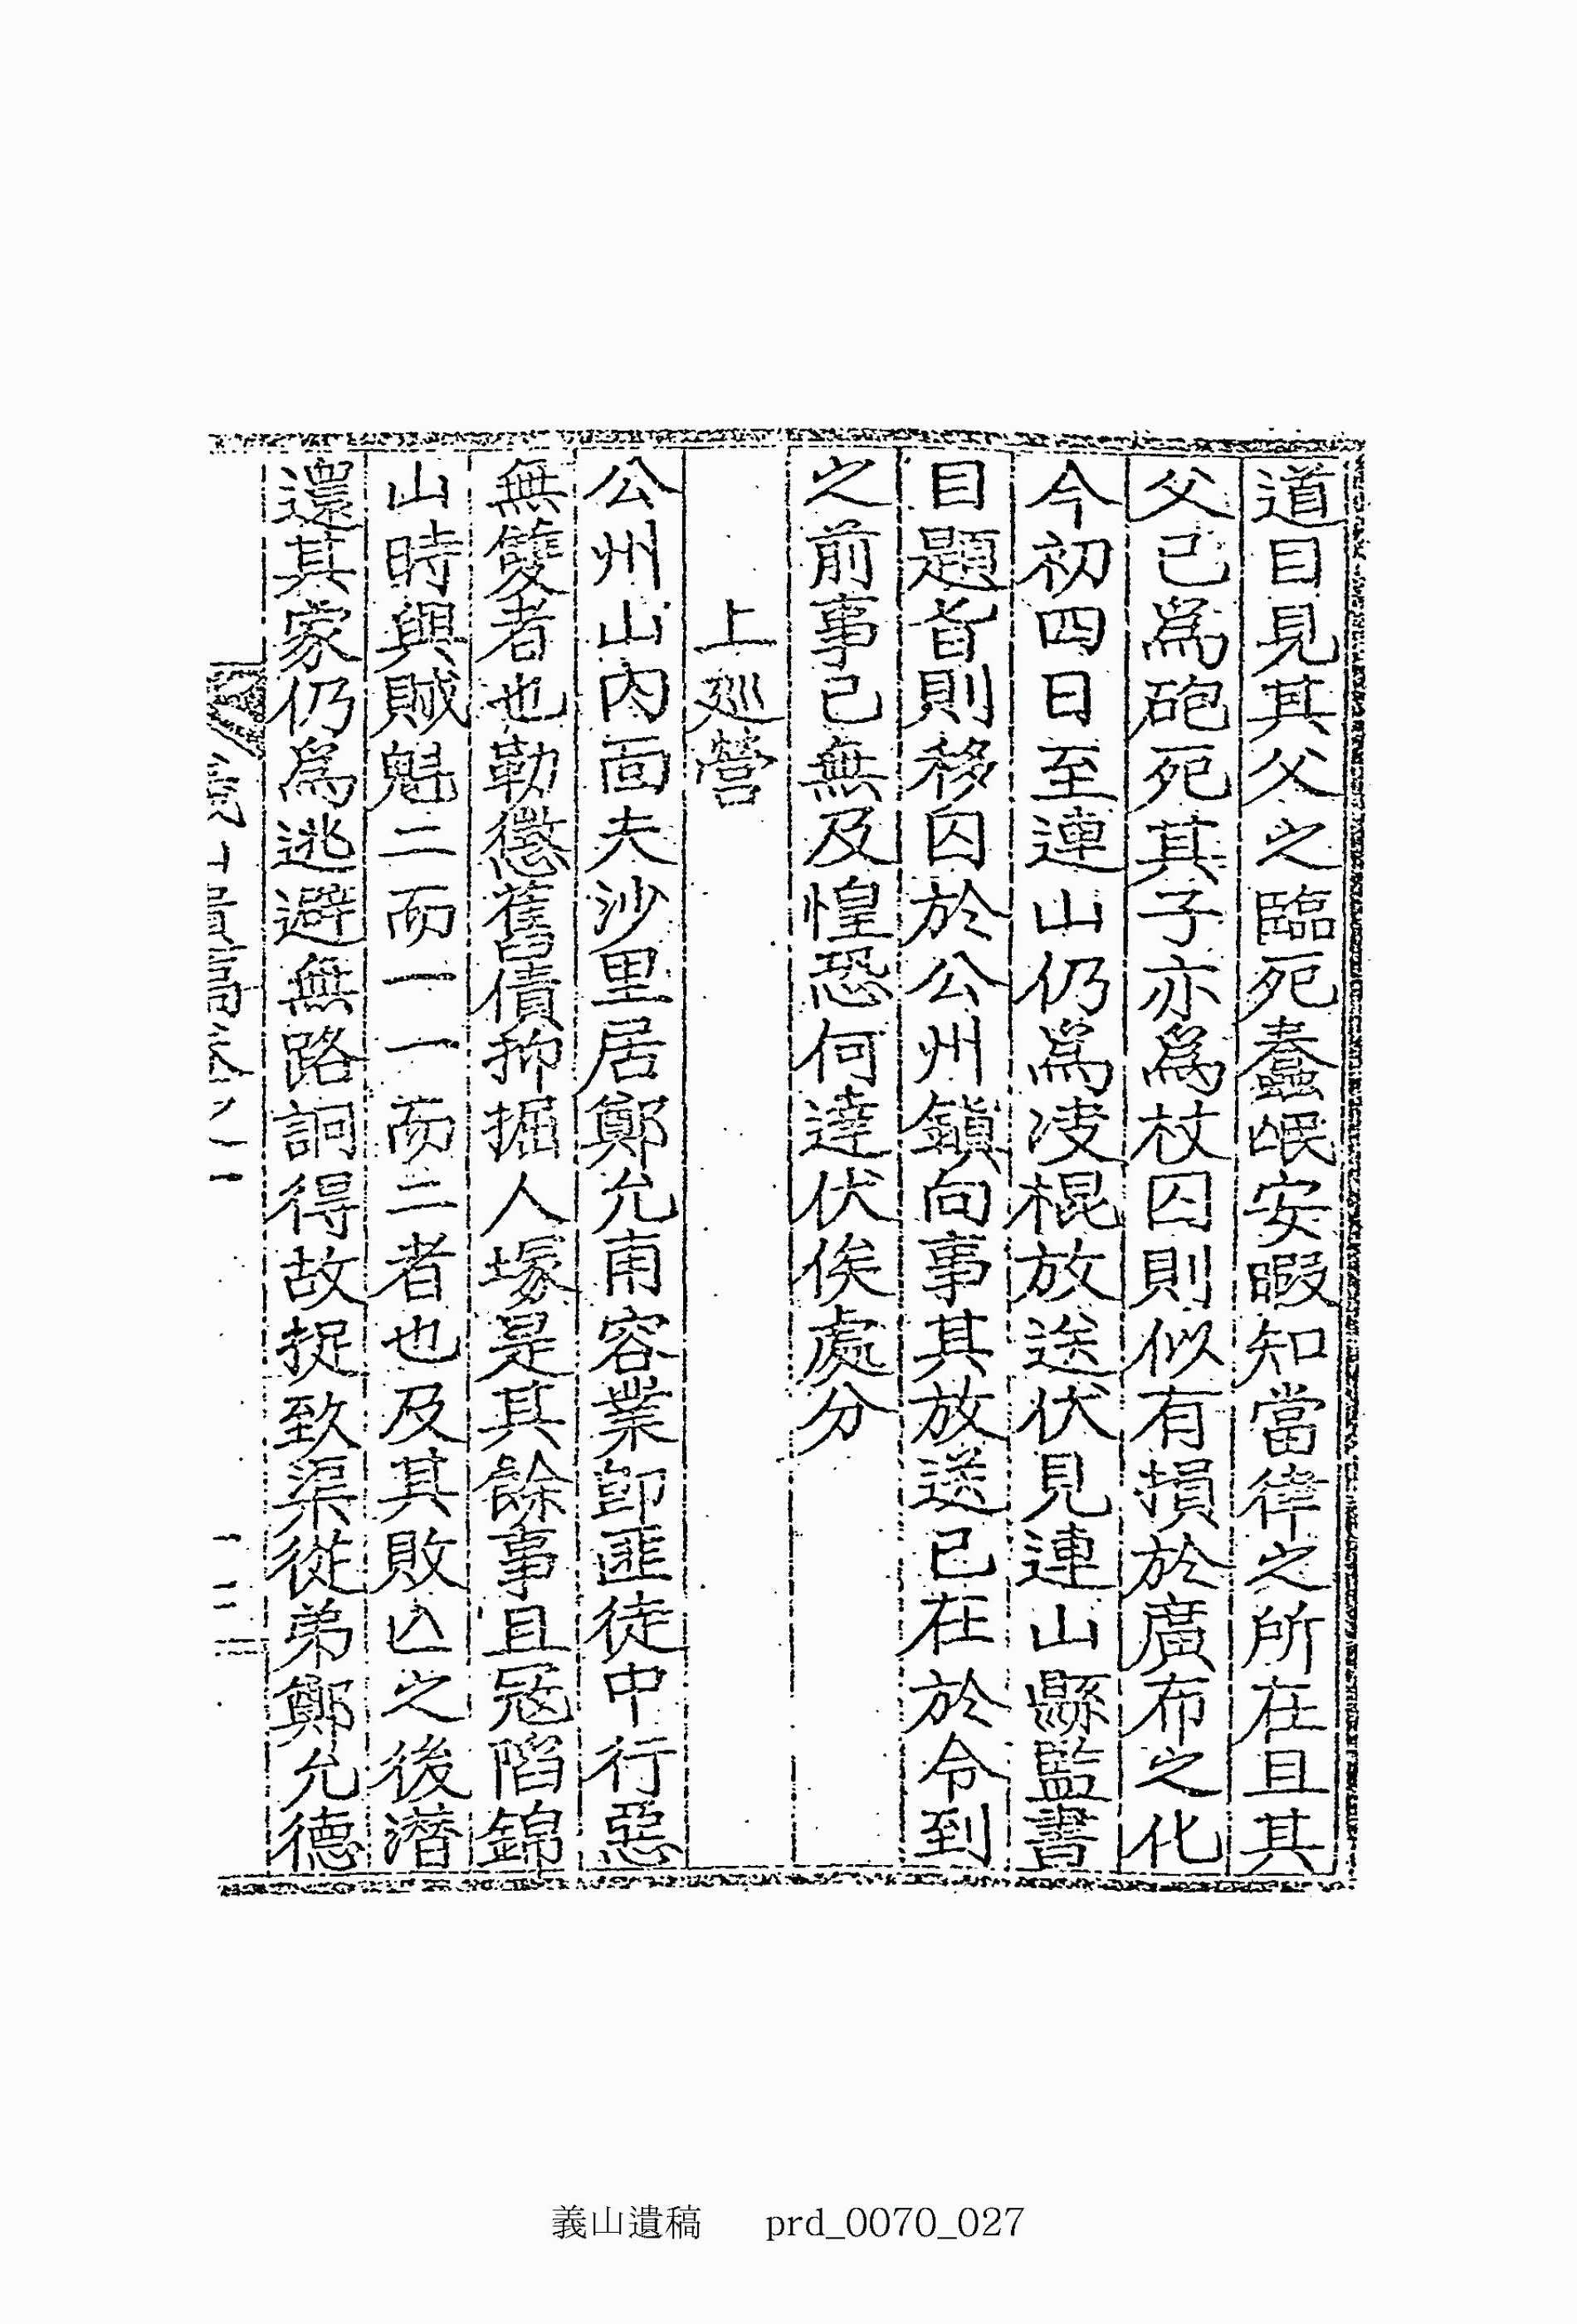 道目見其父之臨死蠢氓安暇知當律之所在且其
父已爲砲死其子亦爲杖囚則似有損於廣布之化
今初四日至連山仍爲决棍放送伏見連山縣監書
目題旨則移囚於公州鎭向事其放送已在於令到
之前事已無及惶恐何達伏俟處分
上廵營
公州山內面夫沙里居鄭允甫容業卽匪徒中行惡
無雙者也勒懲舊債抑掘人塚是其餘事且冦陷錦
山時與賊魁二而一一而二者也及其敗亡之後潛
還其家仍爲逃避無路詗得故捉致渠從弟鄭允德
義山遺稿卷之二
義山遺稿 prd_0070_027